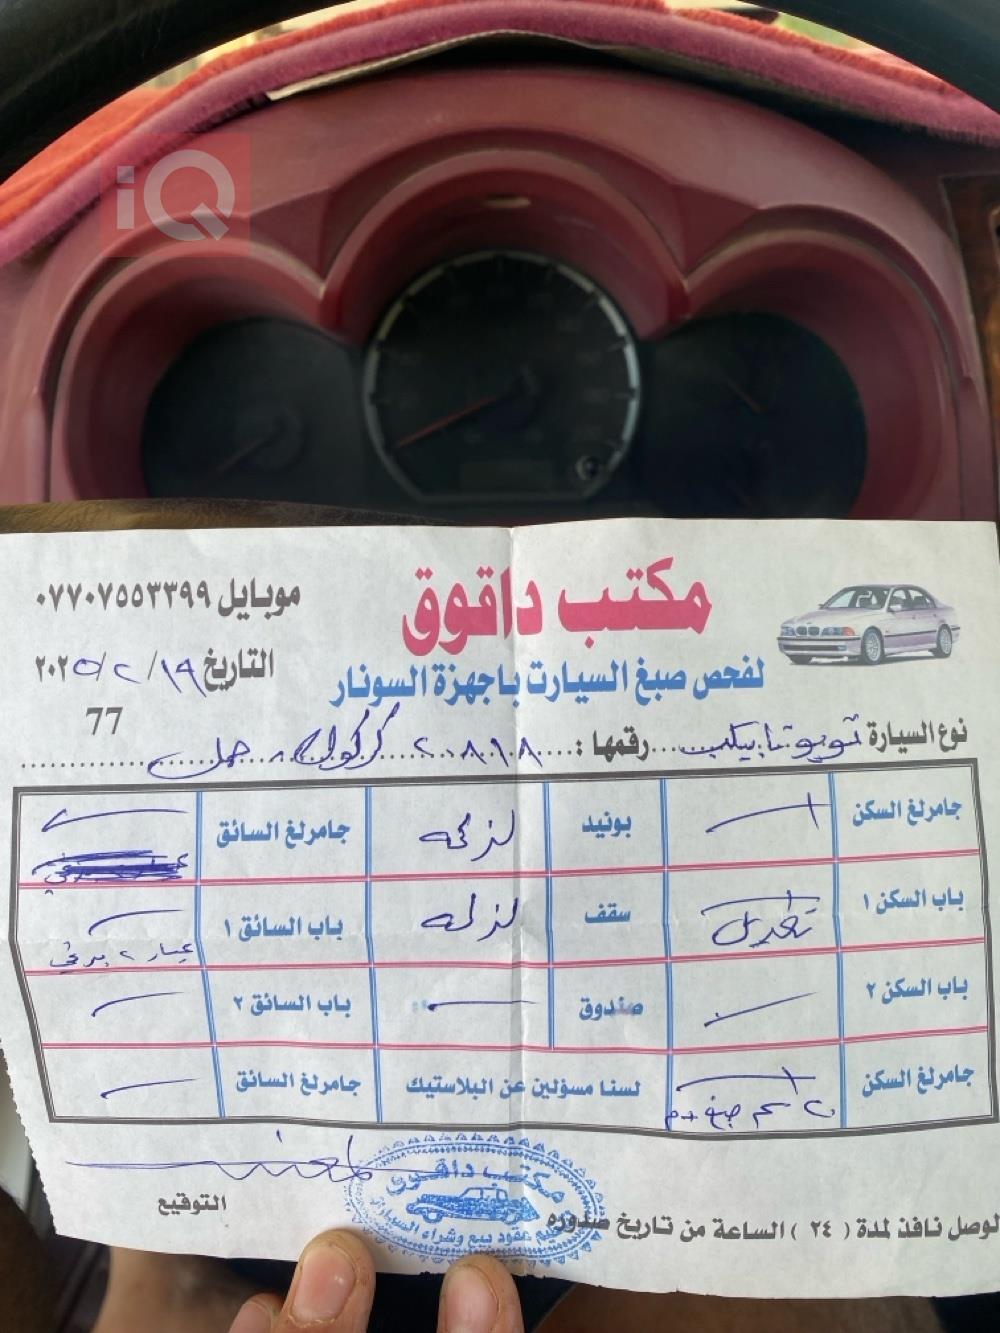 iQ
مكتب داقوق
موبايل ٠٧٧٠٧٥٥٣٣٩٩
لفحص صبغ السيارت باجهزة السونار
التاريخ ١٩/٢/٢٠٢٥
77
نوع السيارة تويوتا بيكب رقمها : ٢٠٨٩٨ كركوك حمل
جامرلغ السكن بونيد لزكه جامرلغ السائق
باب السكن ١ تعديل سقف لزكه باب السائق ١
باب السكن ٢ صندوق باب السائق ٢
جامرلغ السكن ٢٠ سم صبغ لسنا مسؤلين عن البلاستيك جامرلغ السائق
التوقيع
مكتب داقوق
لتنظيم عقود بيع وشراء السيارات
لوصل نافذ لمدة ( ٢٤ ) الساعة من تاريخ صدوره